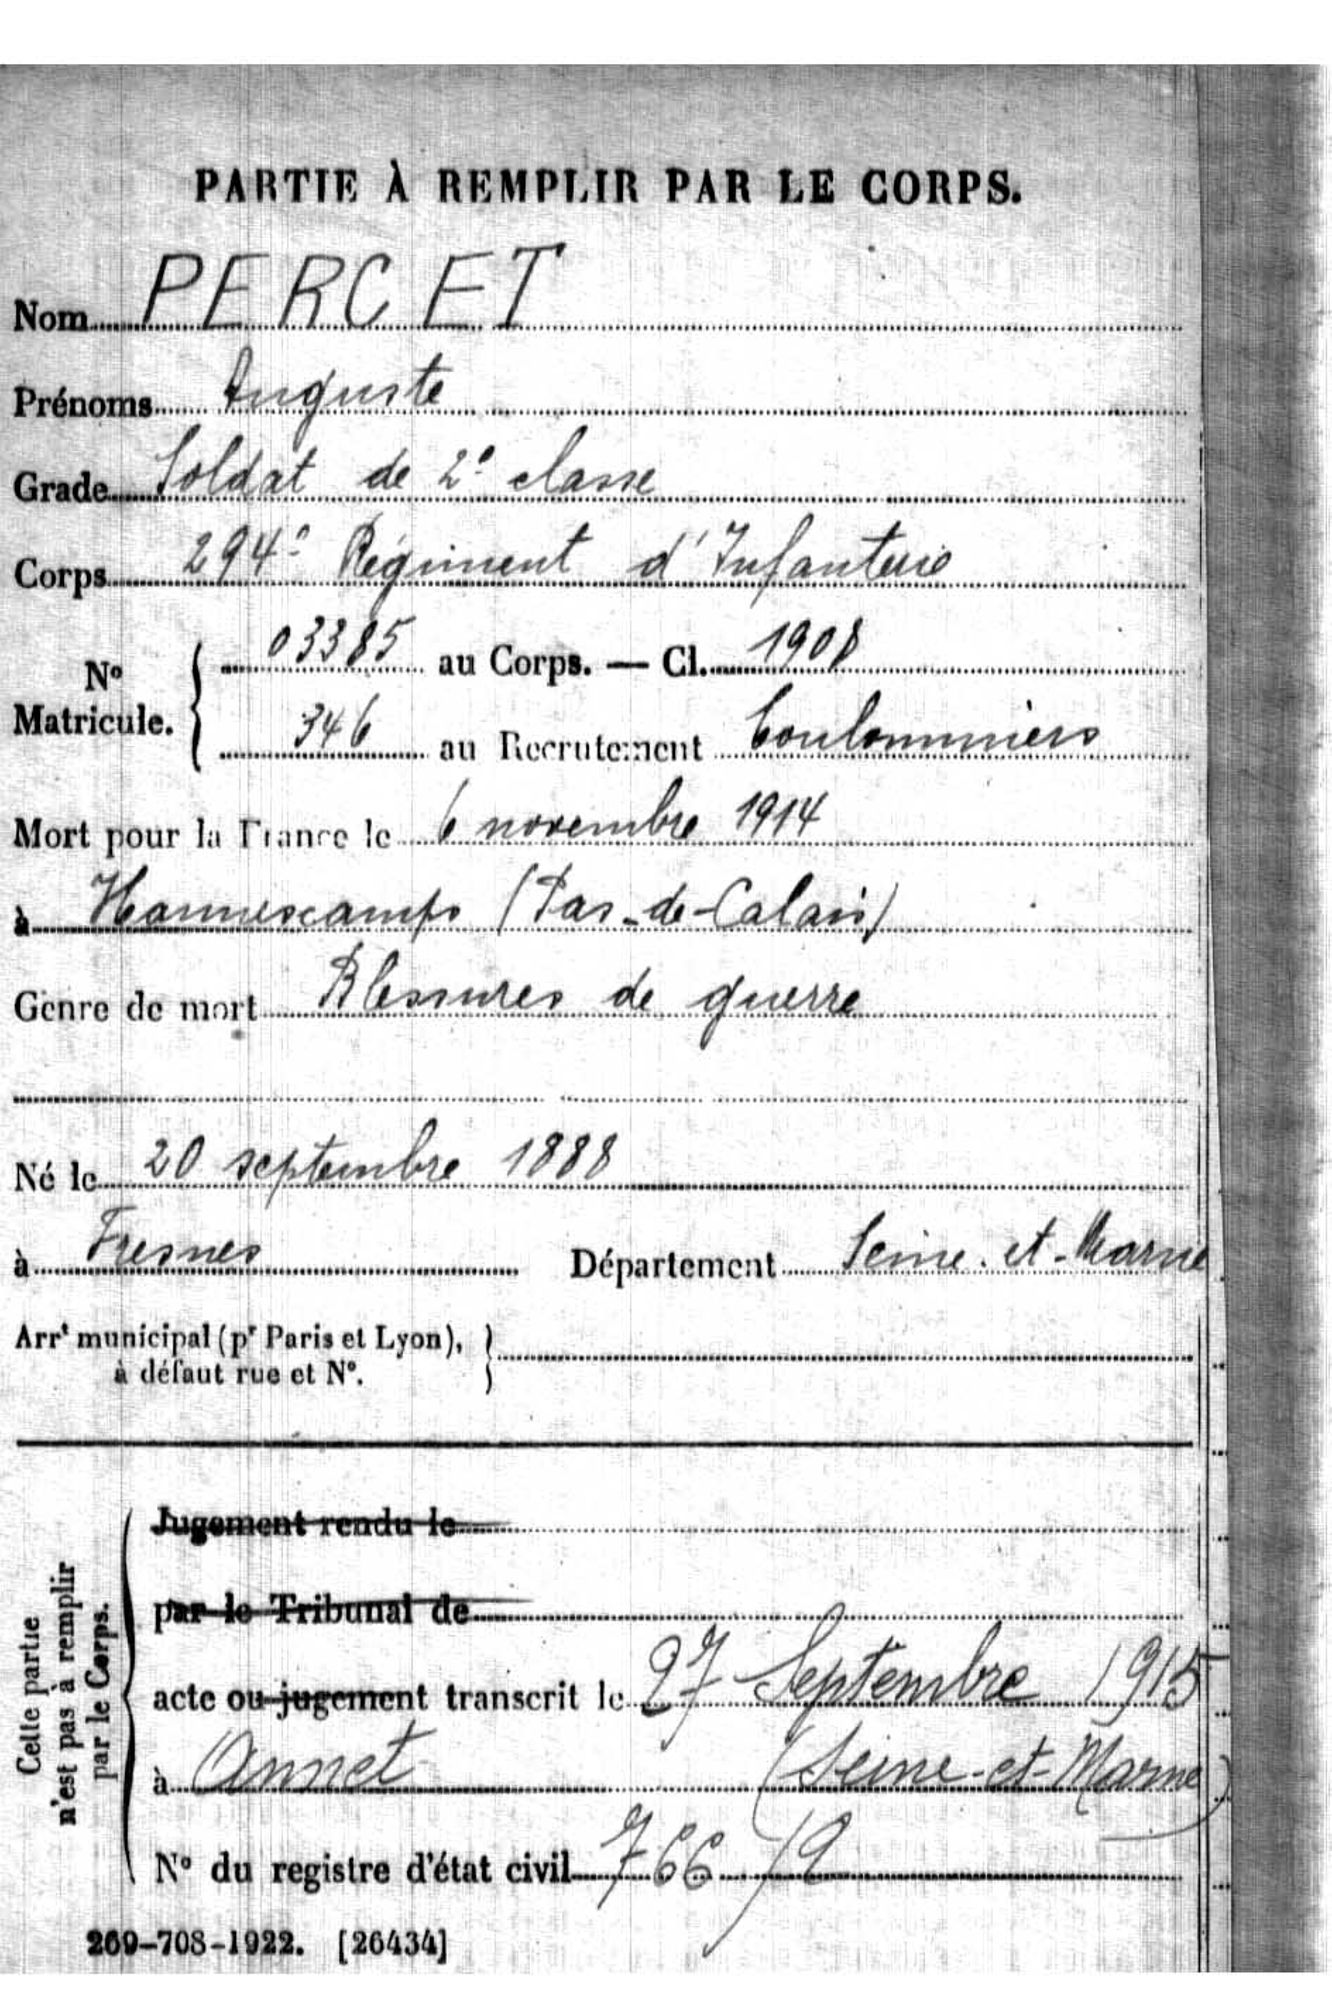 PARTIE À REMPLIR PAR LE CORPS.
Nom PERCET
Prénoms Auguste
Grade Soldat de 2e classe
Corps 294e Régiment d'Infanterie
N° Matricule. 03385 au Corps. — Cl. 1908
346 au Recrutement Coulommiers
Mort pour la France le 6 novembre 1914
à Hannescamps (Pas-de-Calais)
Genre de mort Blessures de guerre
Né le 20 septembre 1888
à Fresnes Département Seine-et-Marne
Arrt municipal (pr Paris et Lyon),
à défaut rue et N°.
Cette partie
n'est pas à remplir
par le Corps.
Jugement rendu le
par le Tribunal de
acte ou jugement transcrit le 27 Septembre 1915
à Annet (Seine-et-Marne)
N° du registre d'état civil 766
269-708-1922. [26434]